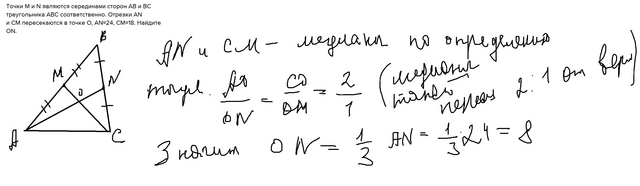 Точки M и N являются серединами сторон AB и BC
треугольника ABC соответственно. Отрезки AN
и CM пересекаются в точке O, AN=24, CM=18. Найдите
ON.
B
M
N
O
A
C
AN и CM – медианы по определению
тогда. AO/ON = CO/OM = 2/1 (медианы
точкой перес 2:1 от верш)
Значит ON = 1/3 AN = 1/3·24 = 8